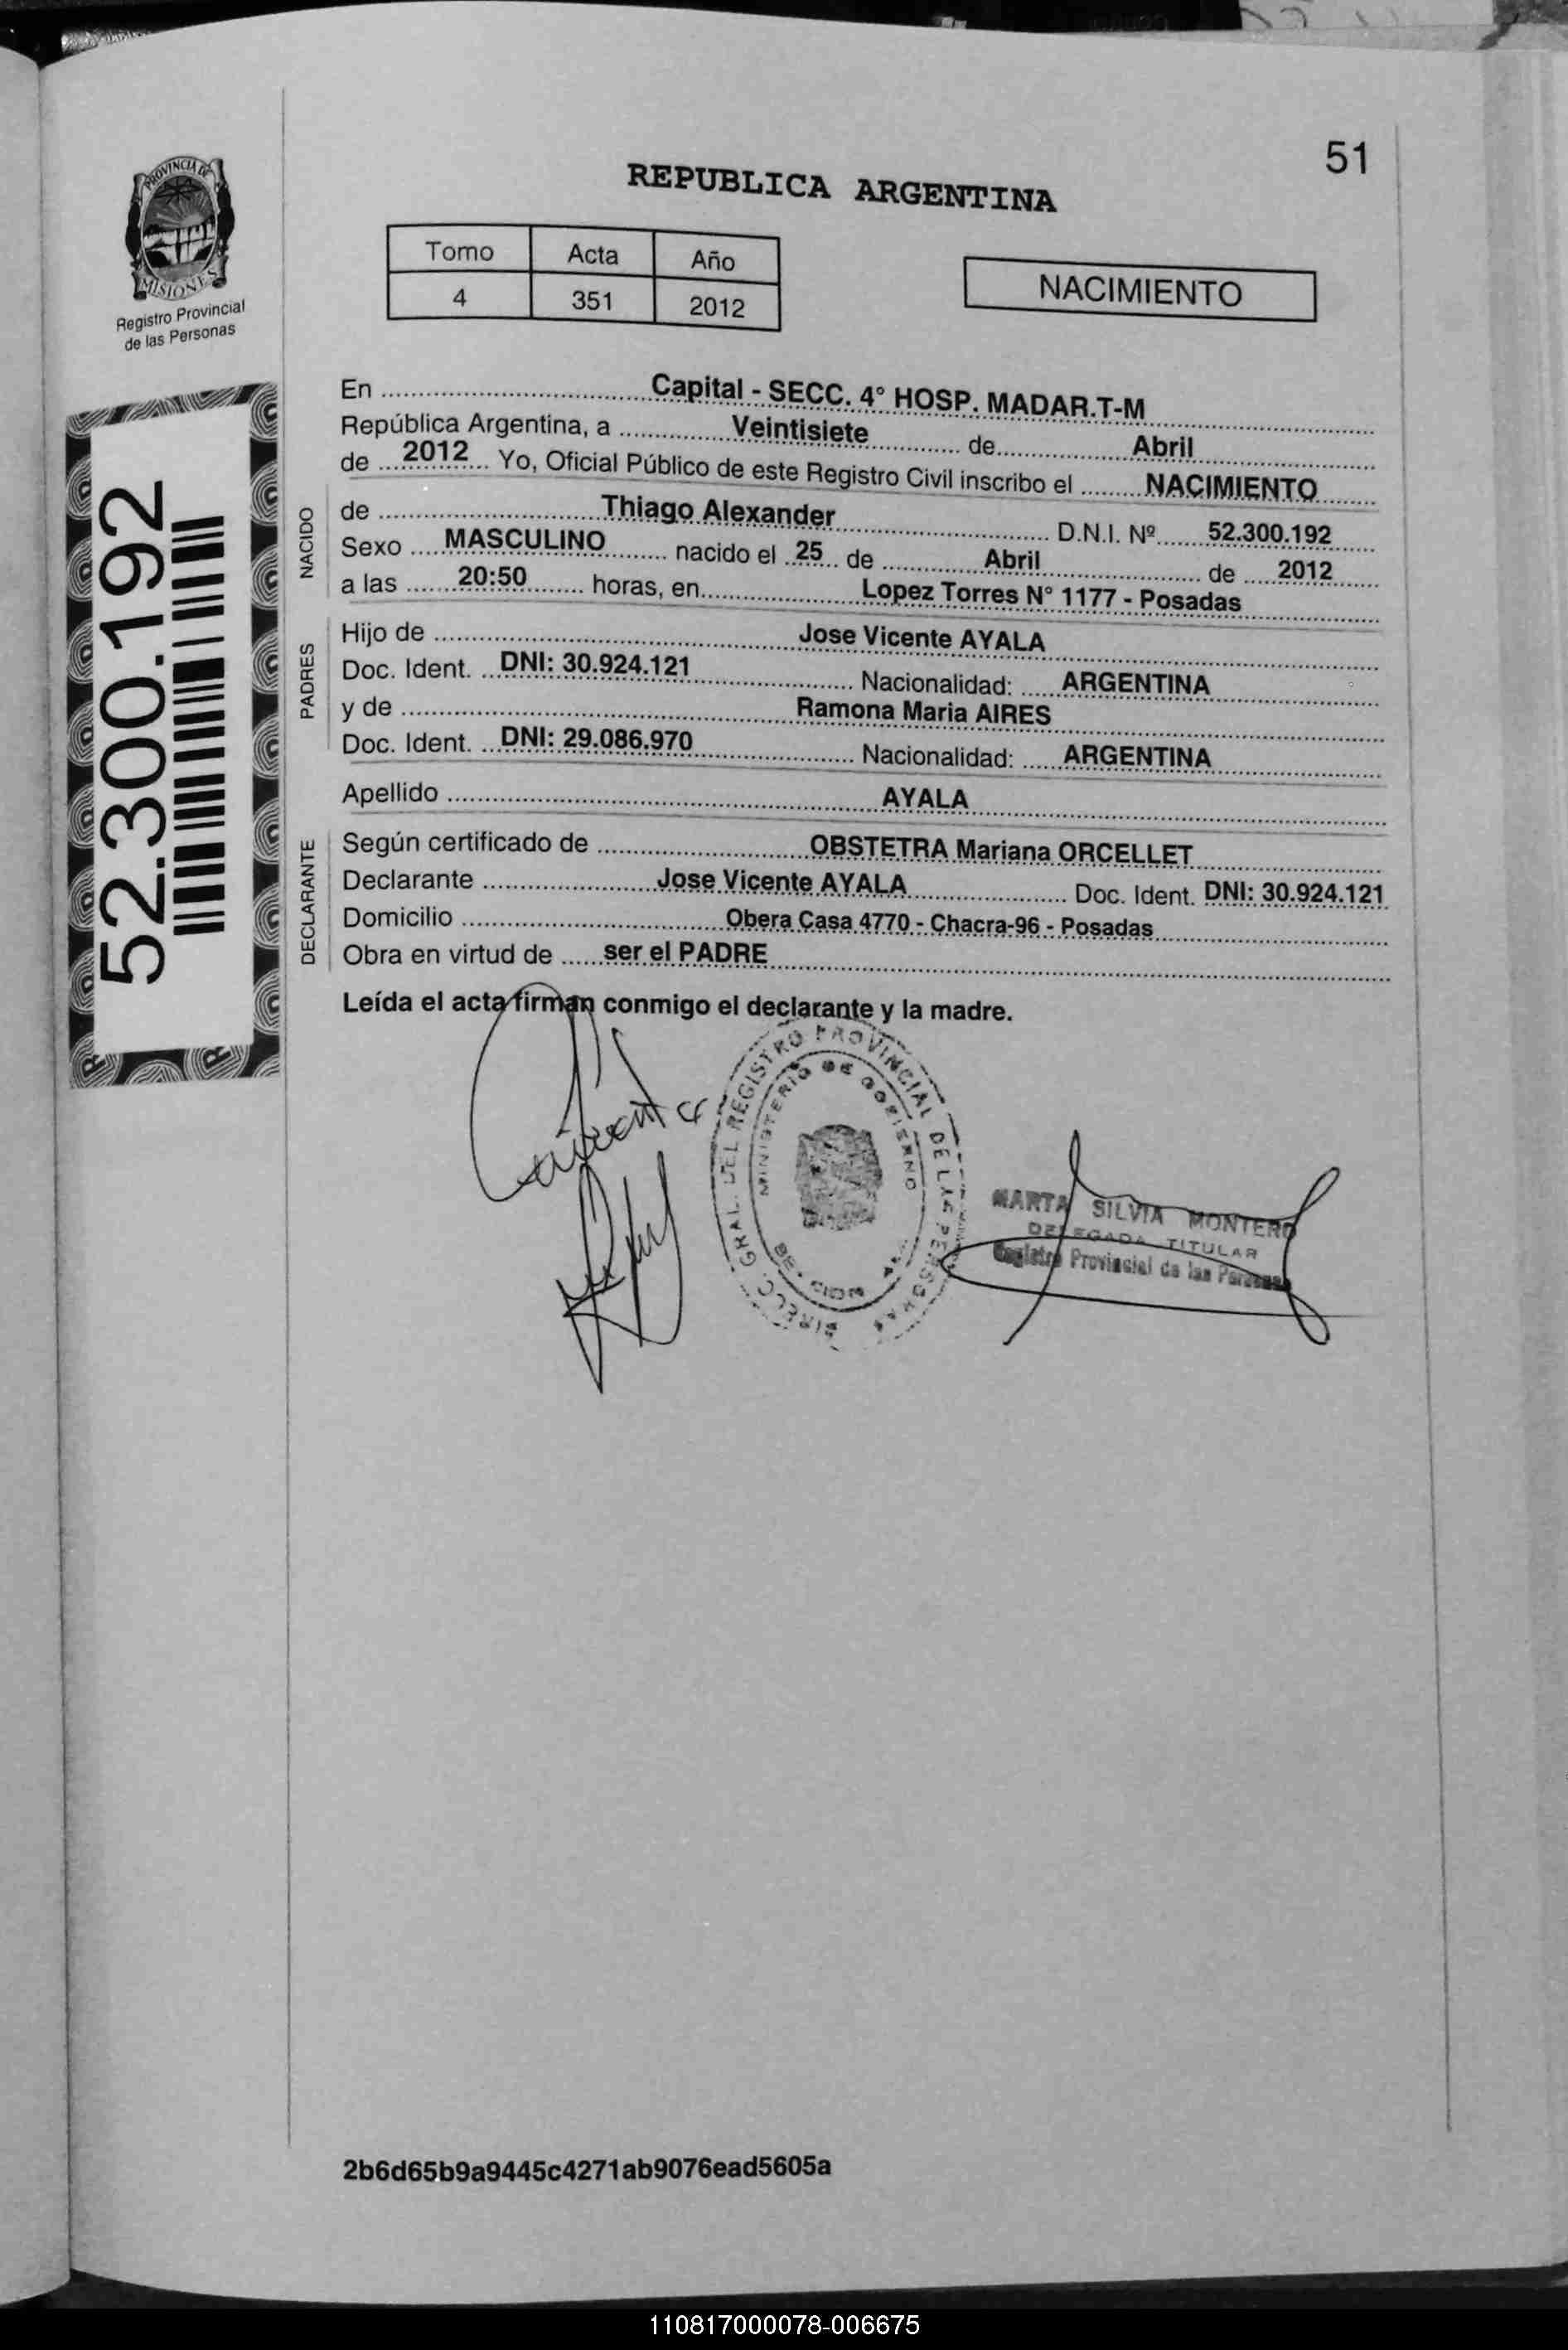 51
REPUBLICA ARGENTINA
PROVINCIA DE
MISIONES
Registro Provincial
de las Personas
Tomo Acta Año
4 351 2012
NACIMIENTO
52.300.192
En Capital - SECC. 4° HOSP. MADAR.T-M
República Argentina, a Veintisiete de Abril
de 2012 Yo, Oficial Público de este Registro Civil inscribo el NACIMIENTO
NACIDO
de Thiago Alexander D.N.I. Nº 52.300.192
Sexo MASCULINO nacido el 25 de Abril de 2012
a las 20:50 horas, en Lopez Torres N° 1177 - Posadas
PADRES
Hijo de Jose Vicente AYALA
Doc. Ident. DNI: 30.924.121 Nacionalidad: ARGENTINA
y de Ramona Maria AIRES
Doc. Ident. DNI: 29.086.970 Nacionalidad: ARGENTINA
Apellido AYALA
DECLARANTE
Según certificado de OBSTETRA Mariana ORCELLET
Declarante Jose Vicente AYALA Doc. Ident. DNI: 30.924.121
Domicilio Obera Casa 4770 - Chacra-96 - Posadas
Obra en virtud de ser el PADRE
Leída el acta firman conmigo el declarante y la madre.
DIRECC. GRAL. DEL REGISTRO PROVINCIAL DE LAS PERSONAS
MINISTERIO DE GOBIERNO
MARTA SILVIA MONTERO
DELEGADA TITULAR
Registro Provincial de las Personas
2b6d65b9a9445c4271ab9076ead5605a
110817000078-006675